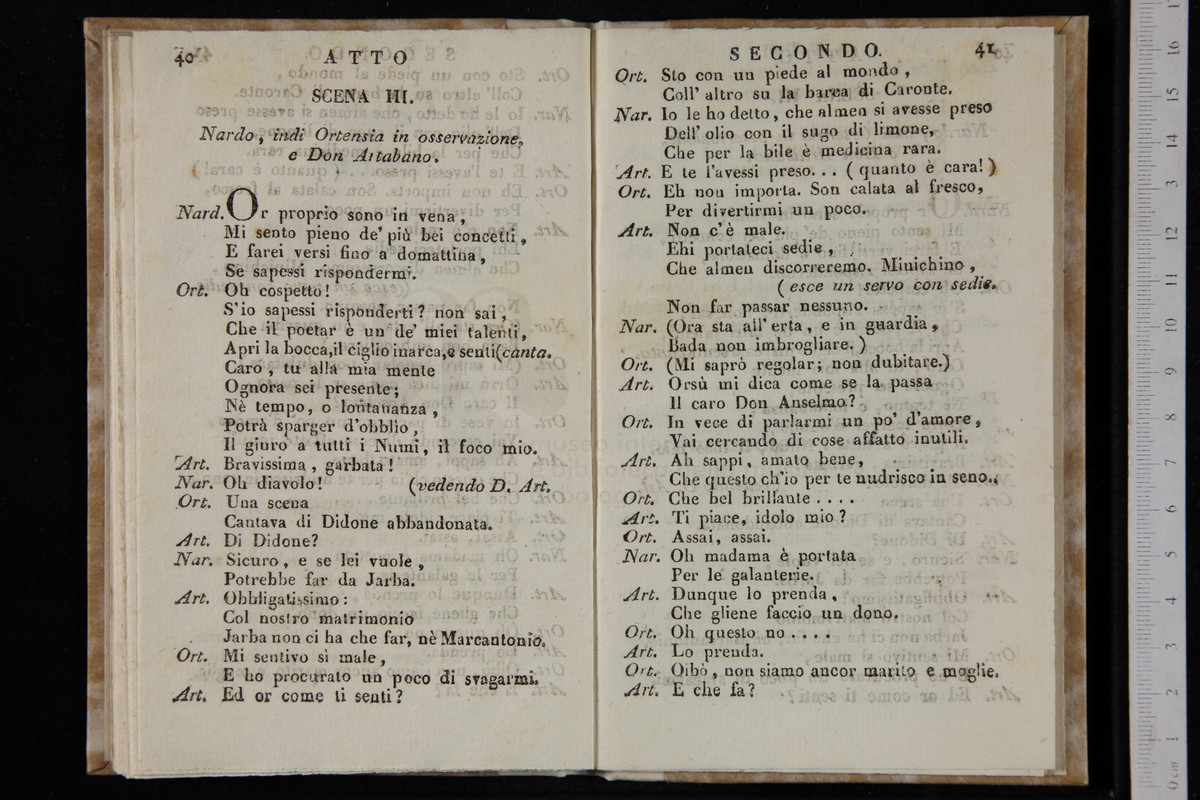 40
ATTO
SCENA III.
Nardo, indi Ortensia in osservazione,
e Don Artabano.
Nard. Or proprio sono in vena,
Mi sento pieno de' più bei concetti,
E farei versi fino a domattina,
Se sapessi rispondermi.
Ort. Oh cospetto!
S'io sapessi risponderti? non sai,
Che il poetar è un de' miei talenti,
Apri la bocca, il ciglio inarca, e senti (canta.
Caro, tu alla mia mente
Ognora sei presente;
Nè tempo, o lontananza,
Potrà sparger d'obblio,
Il giuro a tutti i Numi, il foco mio.
Art. Bravissima, garbata!
Nar. Oh diavolo! (vedendo D. Art.
Ort. Una scena
Cantava di Didone abbandonata.
Art. Di Didone?
Nar. Sicuro, e se lei vuole,
Potrebbe far da Jarba.
Art. Obbligatissimo:
Col nostro matrimonio
Jarba non ci ha che far, nè Marcantonio.
Ort. Mi sentivo sì male,
E ho procurato un poco di svagarmi.
Art. Ed or come ti senti?
SECONDO.
41
Ort. Sto con un piede al mondo,
Coll' altro su la barca di Caronte.
Nar. Io le ho detto, che almen si avesse preso
Dell' olio con il sugo di limone,
Che per la bile è medicina rara.
Art. E te l'avessi preso... (quanto è cara!)
Ort. Eh non importa. Son calata al fresco,
Per divertirmi un poco.
Art. Non c'è male.
Ehi portateci sedie,
Che almen discorreremo. Minichino,
(esce un servo con sedie.
Non far passar nessuno.
Nar. (Ora sta all' erta, e in guardia,
Bada non imbrogliare.)
Ort. (Mi saprò regolar; non dubitare.)
Art. Orsù mi dica come se la passa
Il caro Don Anselmo?
Ort. In vece di parlarmi un po' d'amore,
Vai cercando di cose affatto inutili.
Art. Ah sappi, amato bene,
Che questo ch'io per te nudrisco in seno..
Ort. Che bel brillante....
Art. Ti piace, idolo mio?
Ort. Assai, assai.
Nar. Oh madama è portata
Per le galanterie.
Art. Dunque lo prenda,
Che gliene faccio un dono.
Ort. Oh questo no....
Art. Lo prenda.
Ort. Oibò, non siamo ancor marito e moglie.
Art. E che fa?